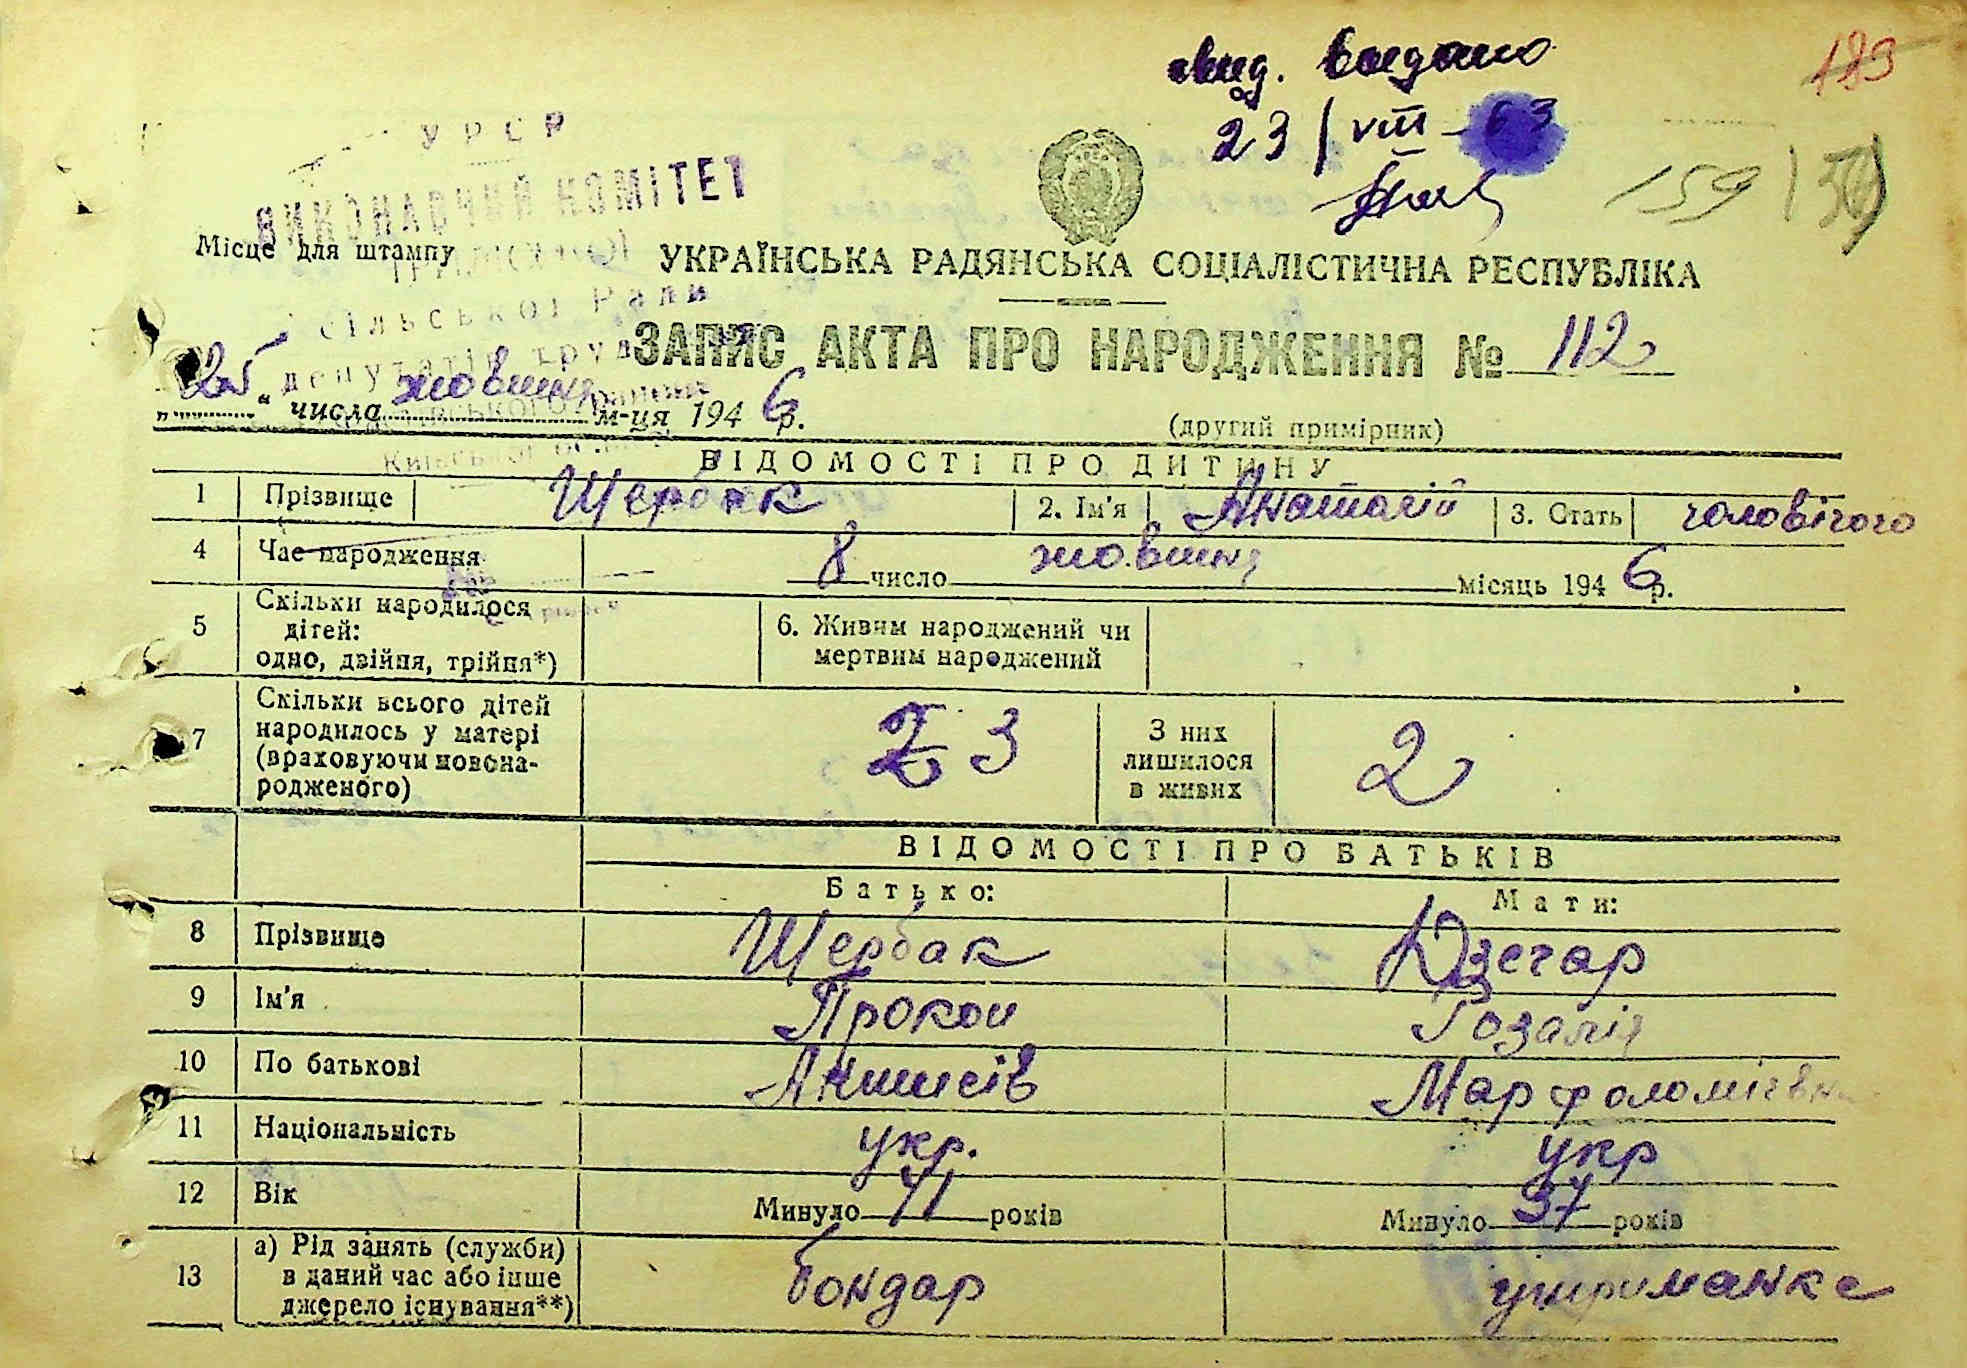 свид. выдано
23/VIII-63
189
159
УРСР
ВИКОНАВЧИЙ КОМІТЕТ
Місце для штампу
сільської Ради
депутатів труд
УКРАЇНСЬКА РАДЯНСЬКА СОЦІАЛІСТИЧНА РЕСПУБЛІКА
ЗАПИС АКТА ПРО НАРОДЖЕННЯ № 112
„25“ числа жовтня м-ця 1946 р.
(другий примірник)
ВІДОМОСТІ ПРО ДИТИНУ
1 Прізвище Щербак 2. Ім'я Анатолій 3. Стать чоловічого
4 Час народження 8 число жовтня місяць 1946 р.
5 Скільки народилося дітей: одно, двійня, трійня*) 6. Живим народжений чи мертвим народжений
7 Скільки всього дітей народилось у матері (враховуючи новонародженого) 2 3 З них лишилося в живих 2
ВІДОМОСТІ ПРО БАТЬКІВ
Батько: Мати:
8 Прізвище Щербак Дзегар
9 Ім'я Прокоп Розалія
10 По батькові Марфоломіївна
11 Національність укр. укр
12 Вік Минуло 41 років Минуло 37 років
13 а) Рід занять (служби) в даний час або інше джерело існування**) бондар утриманка